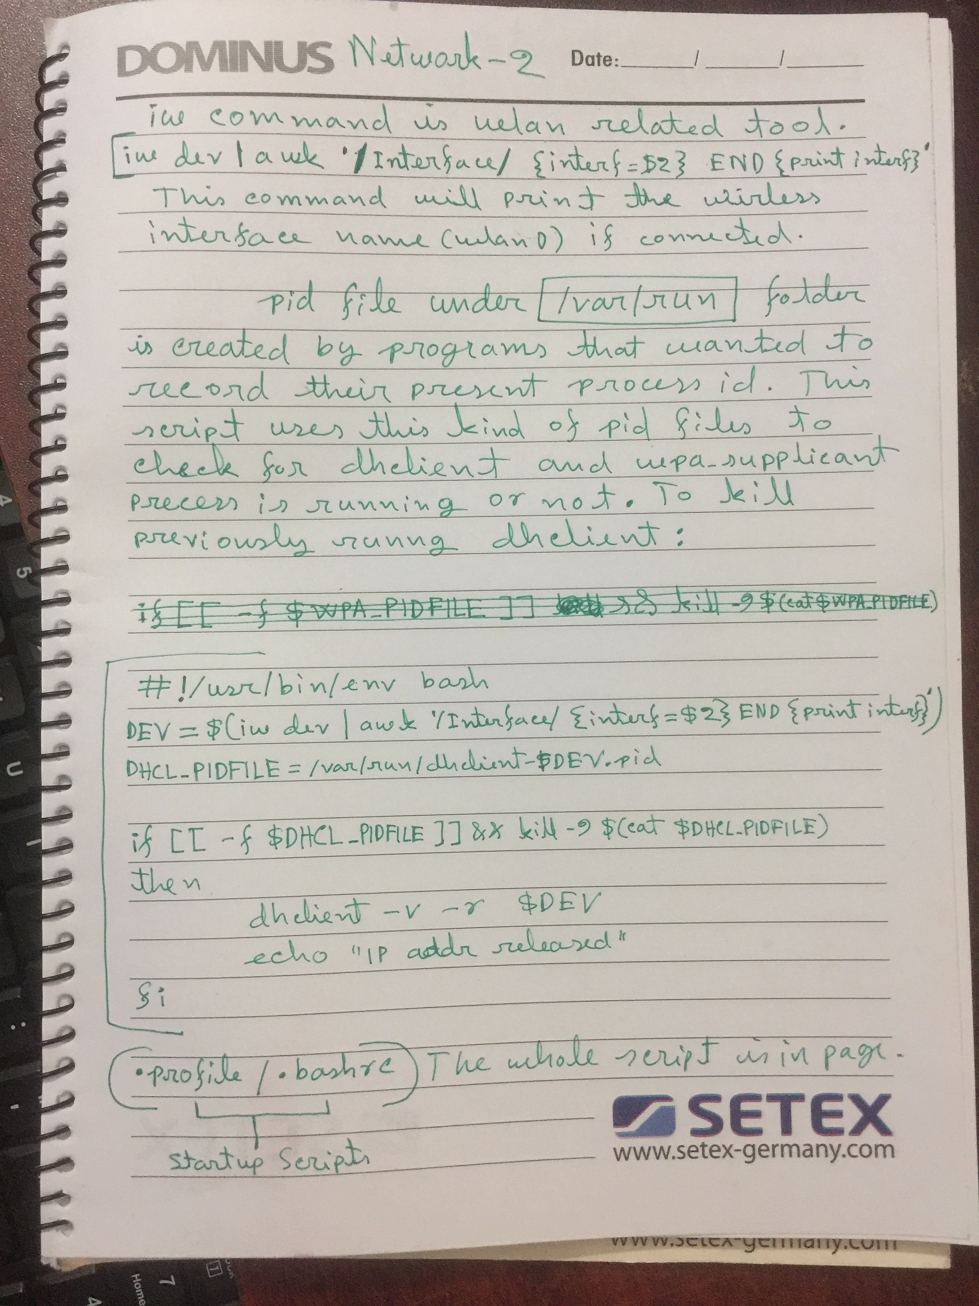 DOMINUS Network-2 Date: ___/___/___
iw command is welan related tool.
iw dev | awk '/Interface/ {interf=$2} END {print interf}'
This command will print the wireless
interface name (wlan0) is connected.
pid file under /var/run folder
is created by programs that wanted to
record their present process id. This
script uses this kind of pid files to
check for dhclient and wpa-supplicant
process is running or not. To kill
previously runng dhclient:
if [[ -f $WPA_PIDFILE ]] && kill -9 $(cat $WPA_PIDFILE)
#!/usr/bin/env bash
DEV = $(iw dev | awk '/Interface/ {interf=$2} END {print interf}')
DHCL_PIDFILE = /var/run/dhclient-$DEV.pid
if [[ -f $DHCL_PIDFILE ]] && kill -9 $(cat $DHCL_PIDFILE)
then
dhclient -v -r $DEV
echo "IP addr released"
fi
.profile / .bashrc The whole script is in page.
startup scripts
SETEX
www.setex-germany.com
www.setex-germany.com